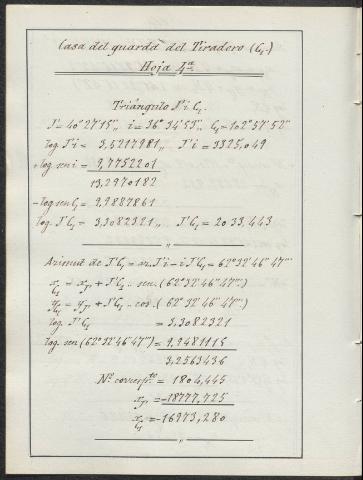 Casa del guarda del Tiradero (C₁.)
Hoja 4ª
Triángulo J' i C₁.
J' = 40° 27' 15",, i = 36° 34' 53",, C₁ = 102° 57' 52"
log. J' i = 3,5217981,, J' i = 3325,049
+ log. sen i = 9,7752201
13,2970182
- log. sen C₁ = 9,9887861
log. J' C₁ = 3,3082321,, J' C₁ = 2033,443
"
Azimut de J' C₁ = az. J' i - i J' C₁ = 62° 32' 46" 47'''
x C₁ = x J' + J' C₁ . sen. (62° 32' 46" 47''')
y C₁ = y J' + J' C₁ . cos. (62° 32' 46" 47''')
log. J' C₁ = 3,3082321
log. sen (62° 32' 46" 47''') = 9,9481115
3,2563436
Nº. corresp.te = 1804,445
x J' = -18777,725
x C₁ = -16973,280
"